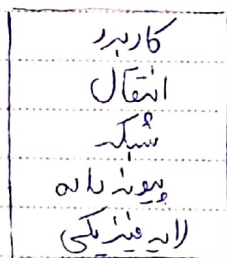 کاربرد
انتقال
شبکه
پیوند داده
لایه فیزیکی